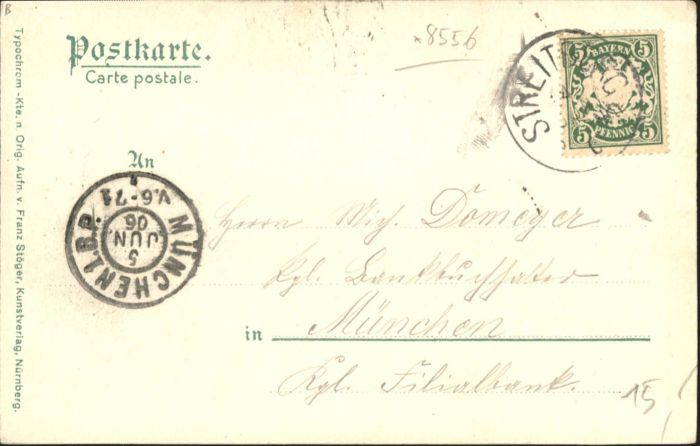 B
Postkarte.
Carte postale.
*8556
STREIT
5 BAYERN 5
5 PFENNIG 5
An
MÜNCHEN I.B.P.
V.6-7
5
JUN
06
Herrn Mich. Domeyer
Kgl. Bankbuchhalter
in München
Kgl. Filialbank.
15
Typochrom-Kte. n. Orig. Aufn. v. Franz Stöger, Kunstverlag, Nürnberg.